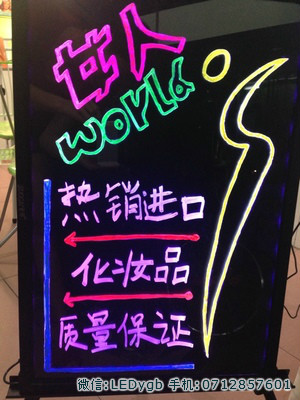 女人
world
热销进口
化妆品
质量保证
微信:LEDygb 手机:0712857601